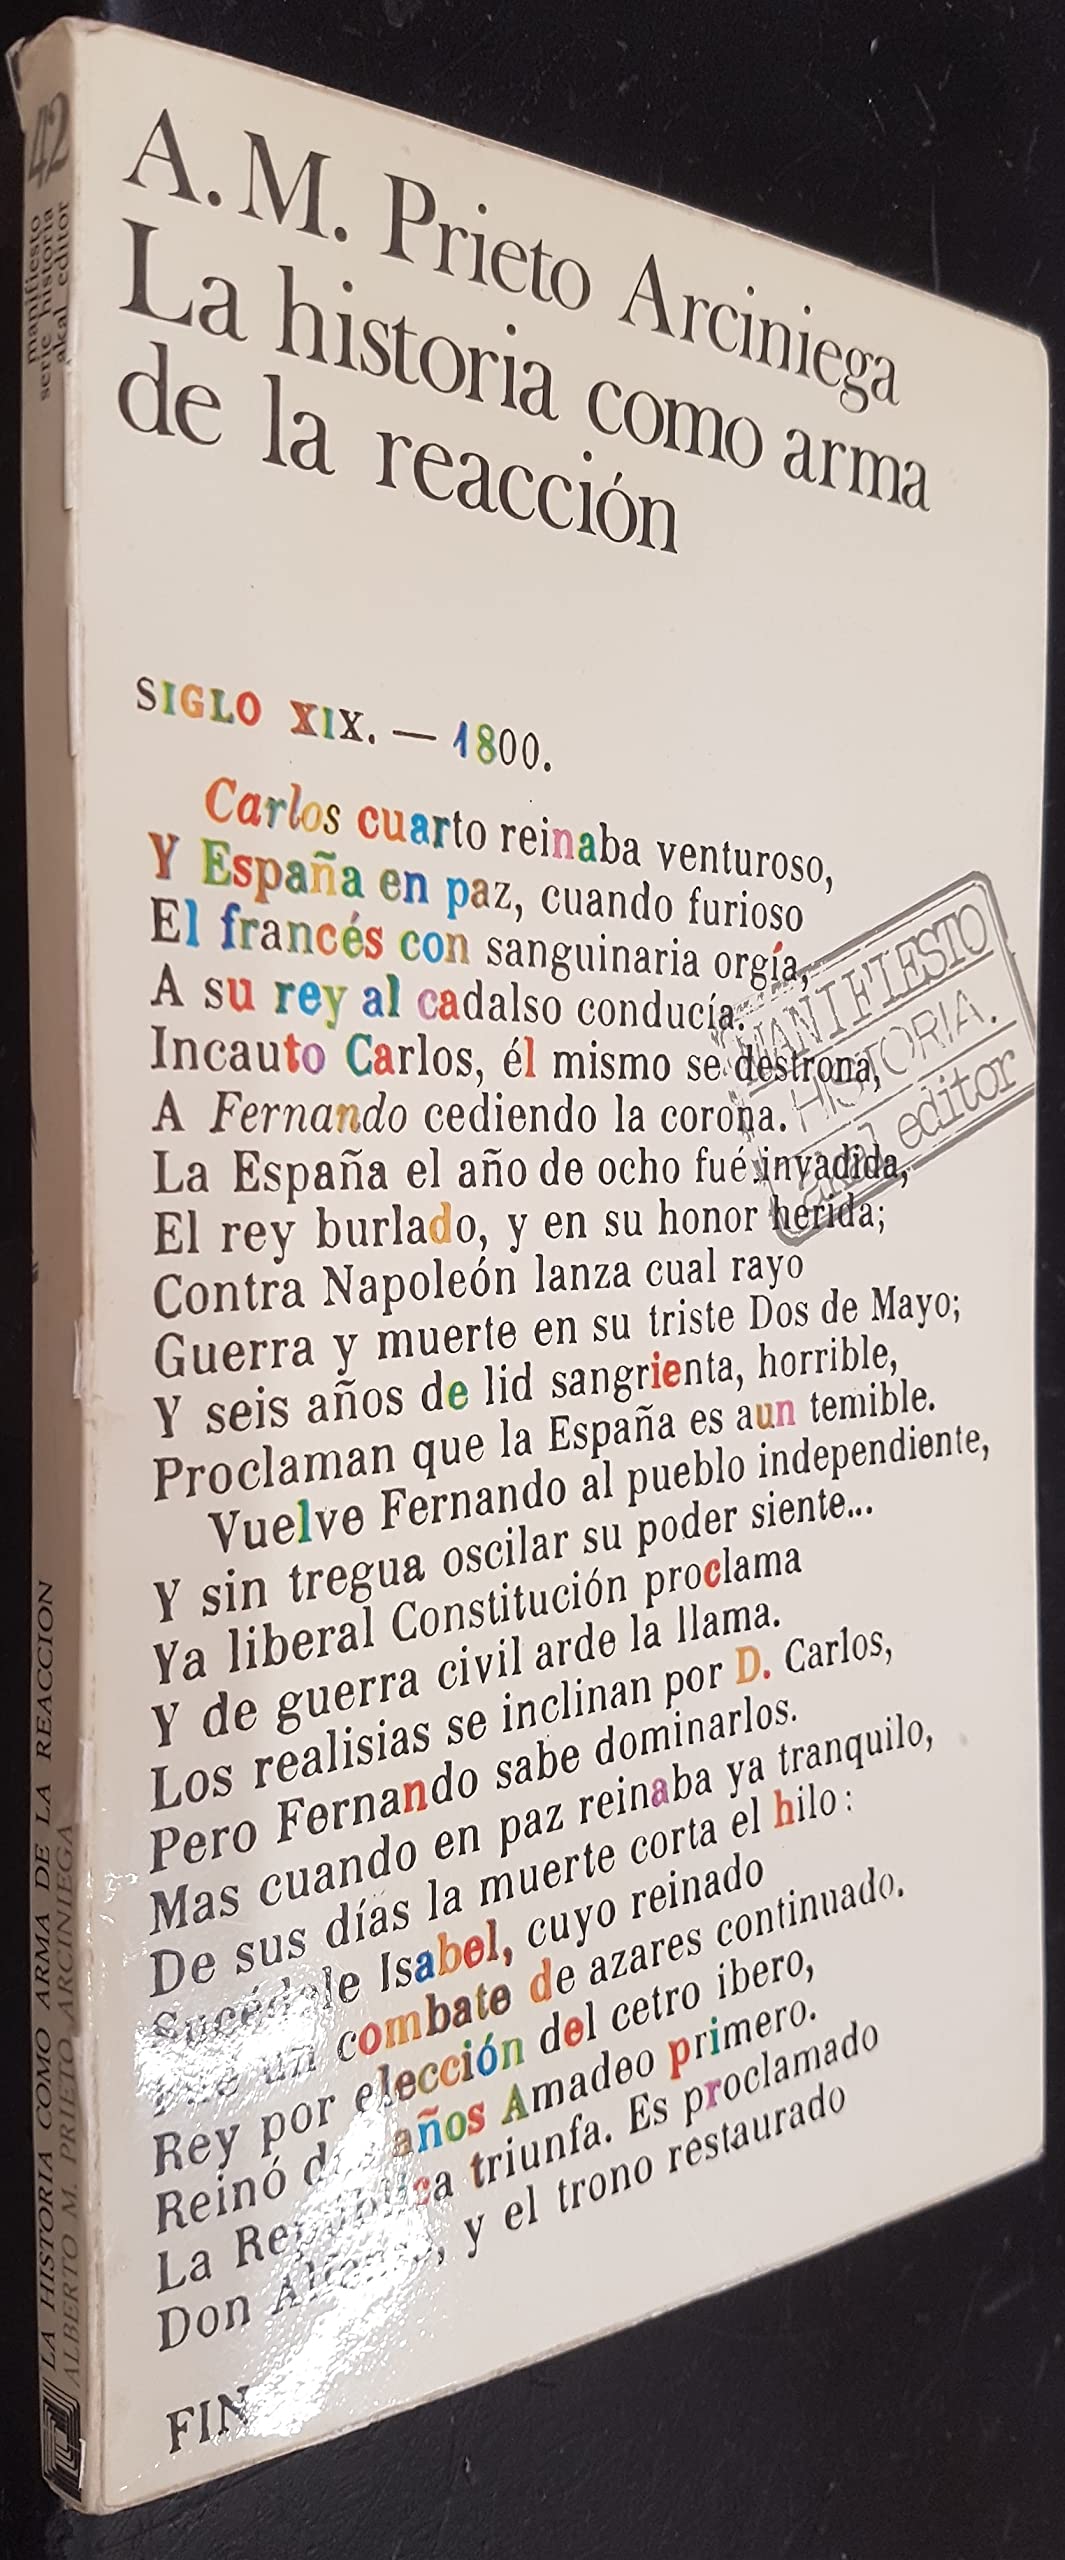 A. M. Prieto Arciniega
La historia como arma
de la reacción
SIGLO XIX. — 1800.
Carlos cuarto reinaba venturoso,
Y España en paz, cuando furioso
El francés con sanguinaria orgía,
A su rey al cadalso conducía.
Incauto Carlos, él mismo se destrona,
A Fernando cediendo la corona.
La España el año de ocho fué invadida,
El rey burlado, y en su honor herida;
Contra Napoleón lanza cual rayo
Guerra y muerte en su triste Dos de Mayo;
Y seis años de lid sangrienta, horrible,
Proclaman que la España es aun temible.
Vuelve Fernando al pueblo independiente,
Y sin tregua oscilar su poder siente...
Ya liberal Constitución proclama
Y de guerra civil arde la llama.
Los realisias se inclinan por D. Carlos,
Pero Fernando sabe dominarlos.
Mas cuando en paz reinaba ya tranquilo,
De sus días la muerte corta el hilo:
Sucédele Isabel, cuyo reinado
un combate de azares continuado.
Rey por elección del cetro ibero,
Reinó años Amadeo primero.
La República triunfa. Es proclamado
Don , y el trono restaurado
FIN
MANIFIESTO
HISTORIA.
akal editor
42
manifiesto
serie historia
akal editor
LA HISTORIA COMO ARMA DE LA REACCION
ALBERTO M. PRIETO ARCINIEGA